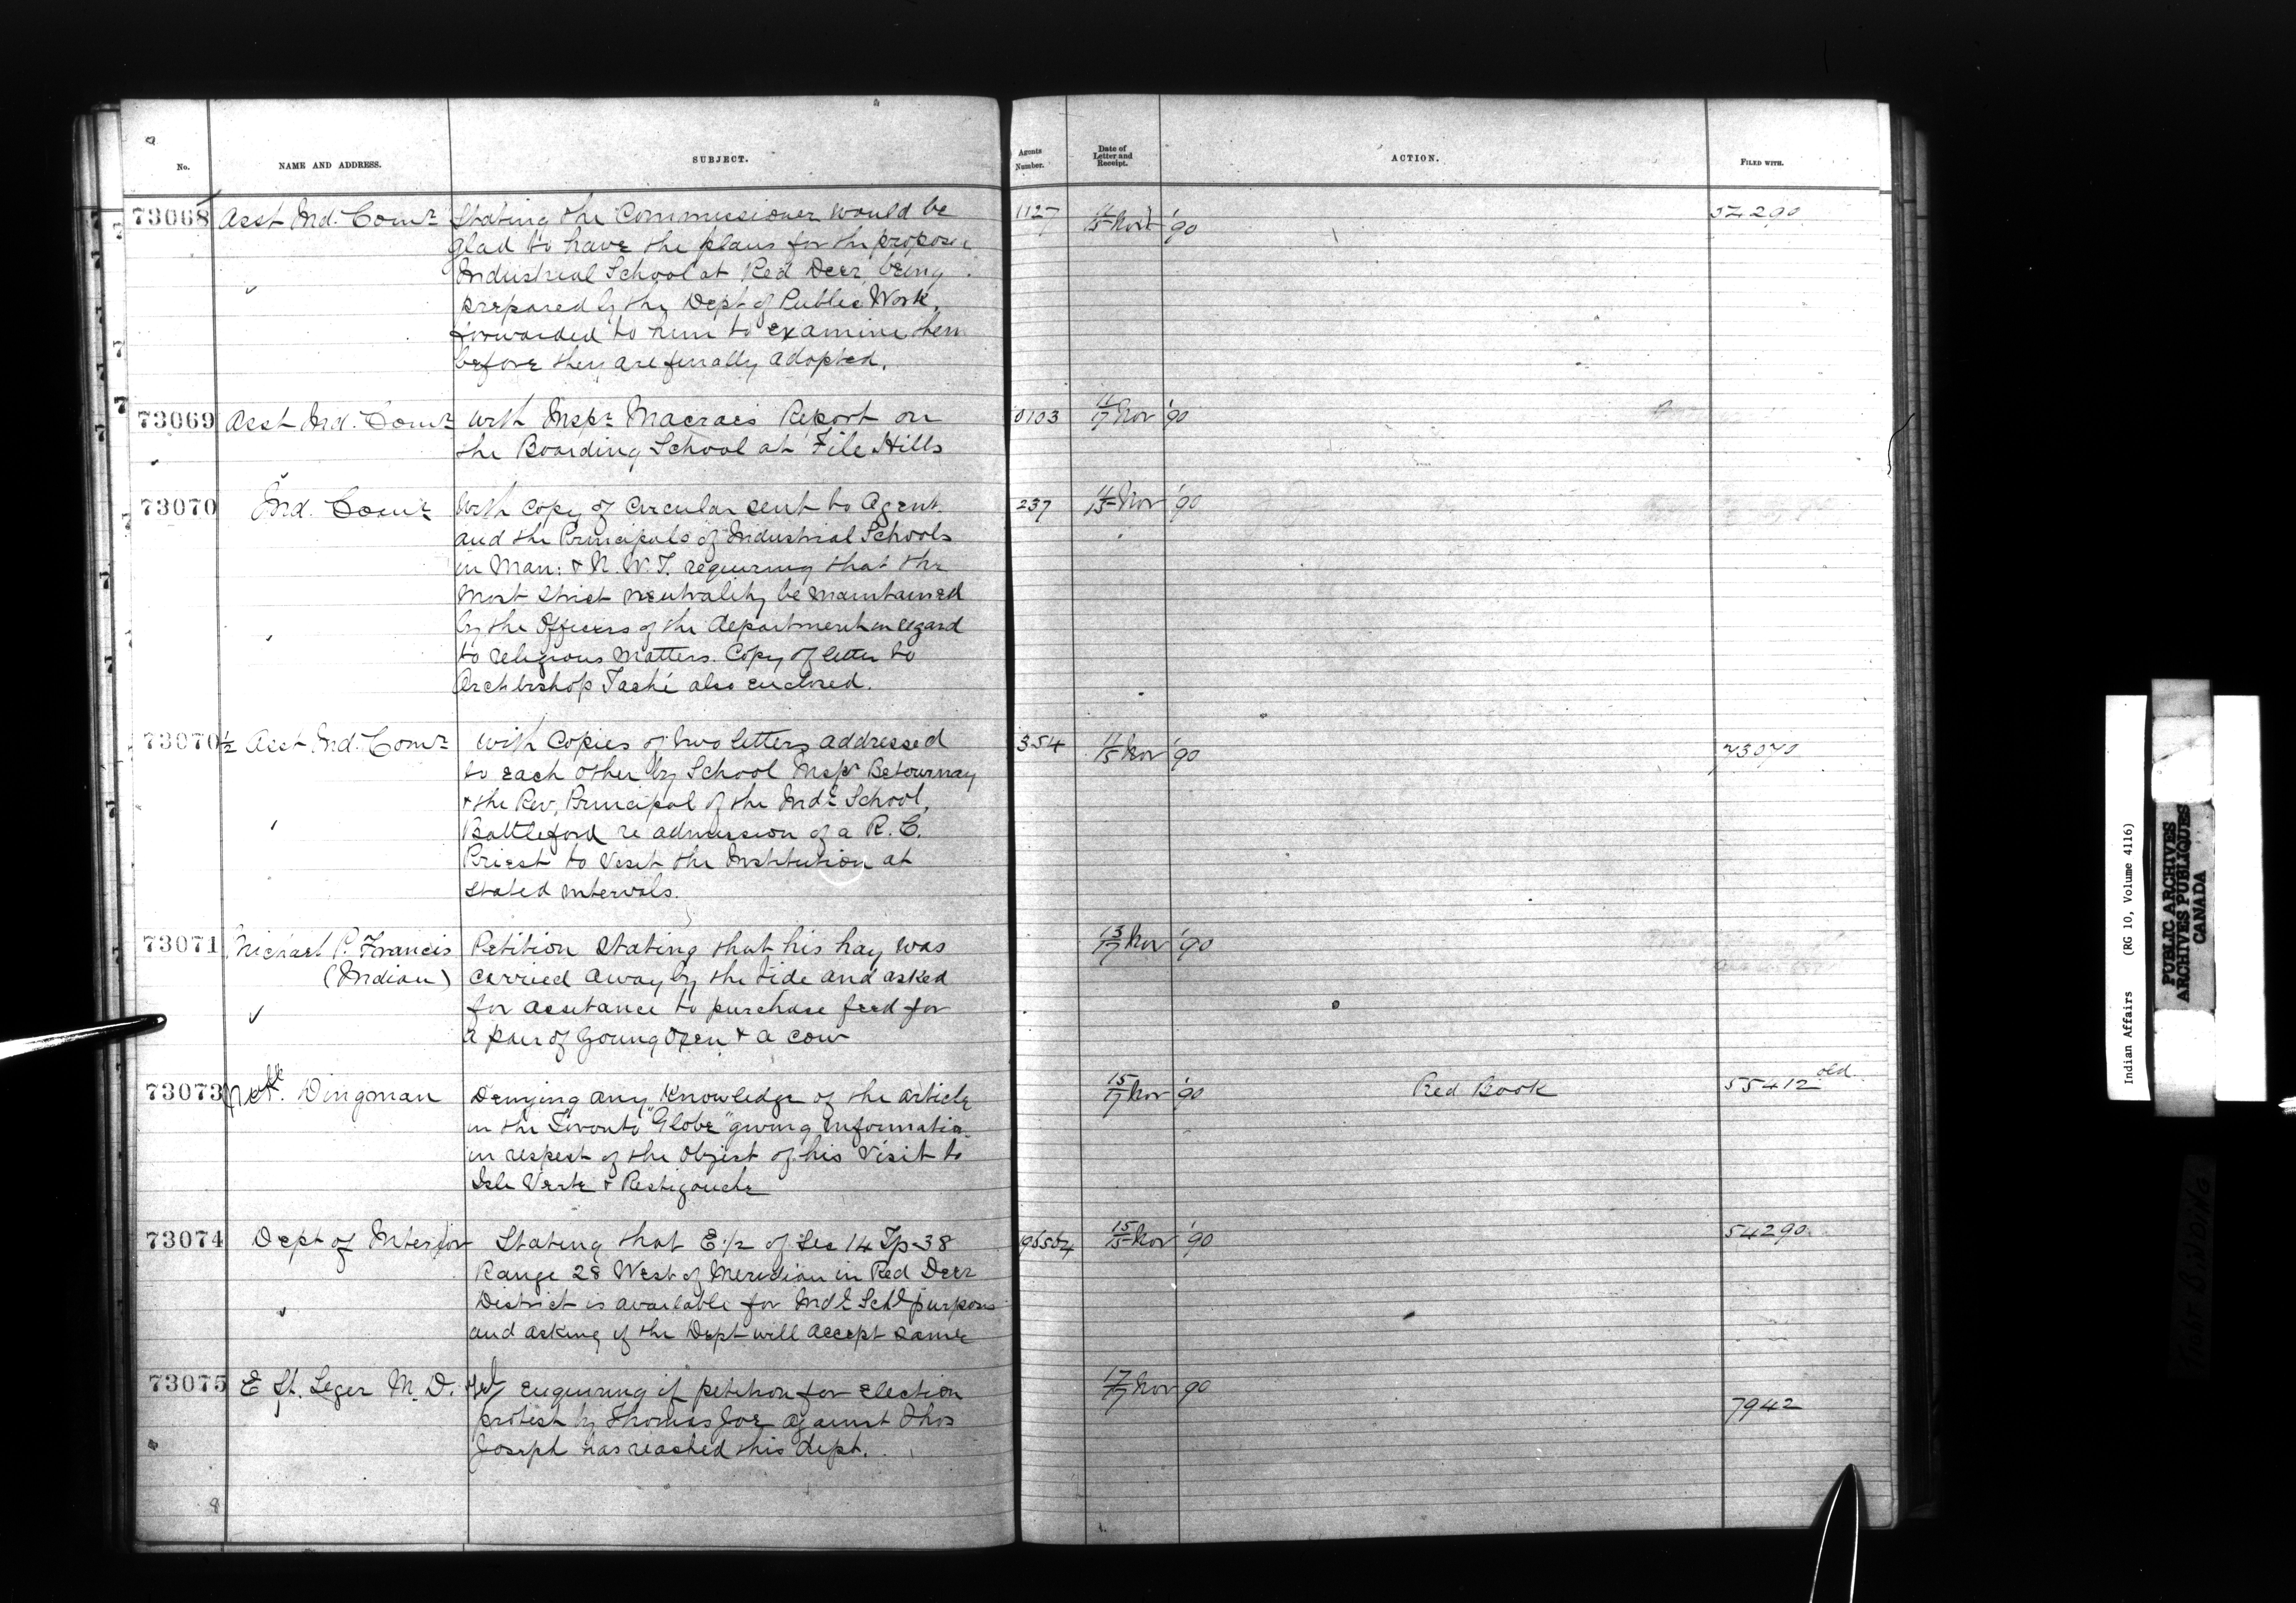 No.
NAME AND ADDRESS.
SUBJECT.
Agents Number.
Date of Letter and Receipt.
ACTION.
FILED WITH.
73068 Asst Ind. Comr Stating the Commissioner would be 1127 11/15 Nov '90 54290
glad to have the plans for the propose
Industrial School at Red Deer being
prepared by the Dept of Public Work,
forwarded to him to examine them
before they are finally adopted.
73069 Asst Ind. Comr With Inspr Macraes Report on 0103 11/17 Nov '90
the Boarding School at File Hills
73070 Ind. Comr With copy of circular sent to Agent 237 11/15 Nov '90
and the Principals of Industrial Schools
in Man: & N.W.T. requiring that the
most strict neutrality be maintained
by the Officers of the department in regard
to religious matters. Copy of letter to
Archbishop Taché also enclosed.
73070½ Asst Ind. Comr With copies of two letters addressed 354 11/15 Nov '90 73070
to each other by School Inspr Betournay
& the Rev. Principal of the Indl School,
Battleford re admission of a R. C.
Priest to visit the Institution at
stated intervals.
73071 Michael P. Francis Petition stating that his hay was 13/17 Nov '90
(Indian) carried away by the tide and asked
for assistance to purchase feed for
a pair of young oxen & a cow
73073 Dingman Denying any knowledge of the article 15/17 Nov '90 Red Book 55412 old
in the Toronto "Globe" giving information
in respect of the object of his visit to
Isle Verte & Restigouche
73074 Dept of Interior Stating that E. 1/2 of Sec 14 Tp 38 15/15 Nov '90 54290
Range 28 West of Meridian in Red Deer
District is available for Indl Schl purposes
and asking if the Dept will accept same
73075 E St. Leger M. D. Tel enquiring if petition for election 17/17 Nov 90
protest by Thomas Joe against Thos 7942
Joseph has reached this dept.
8
Indian Affairs (RG 10, Volume 4116)
PUBLIC ARCHIVES
ARCHIVES PUBLIQUES
CANADA
TIGHT BINDING